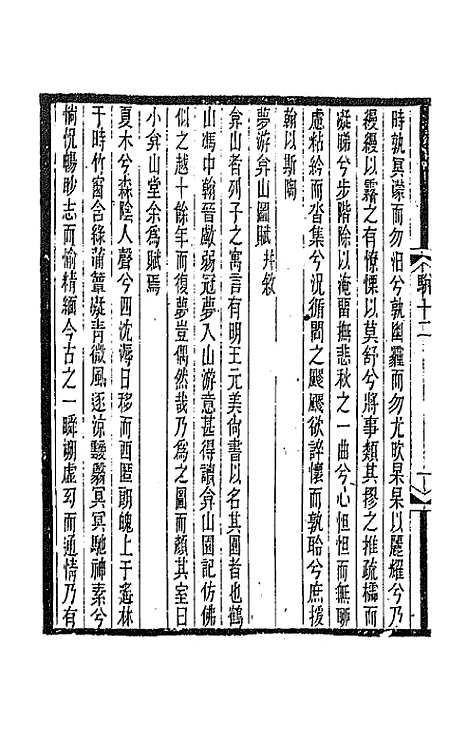 時孰冥濛而勿汨兮孰幽靃而勿尤吹杲杲以麗耀兮乃
緩緩以霧之有憭慄以莫舒兮將事類其摎之推疏櫺而
凝睇兮步階除以淹留撫悲秋之一曲兮心怛怛而無聊
慮粘紛而沓集兮況循閬之飂飂欲誶懷而孰聆兮庶援
翰以斯陶
夢游弇山圖賦 并敘
弇山者列子之寓言有明王元美尚書以名其園者也鶴
山馮中翰晉𢾗弱冠夢入山游意甚得讀弇山園記仿佛
似之越十餘年而復夢豈偶然哉乃為之圖而顏其室曰
小弇山堂余為賦焉
夏木兮森陰人聲兮四沈海日移而西匿朗魄上于遙林
于時竹窗含綠蒲簟凝青微風逐涼駿翳冥冥馳神素兮
惝怳暢眇志而愉精緬今古之一瞬溯虛幻而通情乃有
駢十二